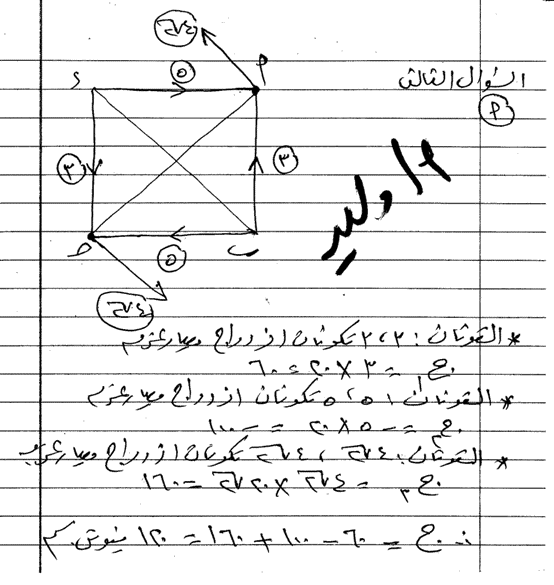 السؤال الثالث
P
أ/ وليد
٤√٢
P
٥
s
٣
٣
ب
٥
ح
٤√٢
* القوتان : ٣، ٣ تكونان ازدواج معيار عزمه
ج١ = ٣ × ٢٠ = ٦٠
* القوتان ٥، ٥ تكونان ازدواج معيار عزمه
ج٢ = - ٥ × ٢٠ = - ١٠٠
* القوتان : ٤√٢ ، ٤√٢ تكونان ازدواج معيار عزمه
ج٣ = ٤√٢ × ٢٠√٢ = ١٦٠
∴ ج = ٦٠ - ١٠٠ + ١٦٠ = ١٢٠ نيوتن . سم